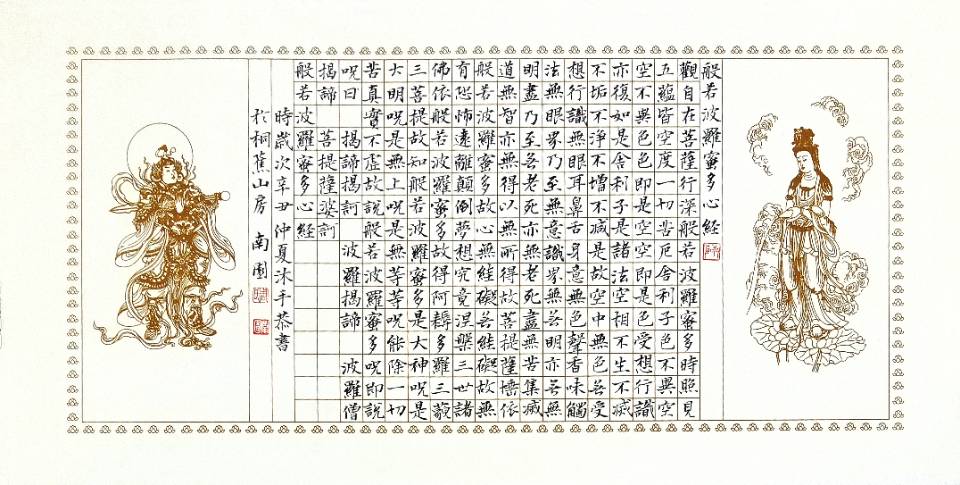 般若波羅蜜多心經
觀自在菩薩行深般若波羅蜜多時照見
五蘊皆空度一切苦厄舍利子色不異空
空不異色色即是空空即是色受想行識
亦復如是舍利子是諸法空相不生不滅
不垢不淨不增不減是故空中無色无受
想行識無眼耳鼻舌身意無色聲香味觸
法無眼界乃至無意識界無无明亦无無
明盡乃至无老死亦無老死盡無苦集滅
道無智亦無得以無所得故菩提薩埵依
般若波羅蜜多故心無絓礙无絓礙故無
有恐怖遠離顛倒夢想究竟涅槃三世諸
佛依般若波羅蜜多故得阿耨多羅三藐
三菩提故知般若波羅蜜多是大神呪是
大明呪是無上呪是無等等呪能除一切
苦真實不虛故說般若波羅蜜多呪即說
呪曰 揭諦揭訶 波羅揭諦 波羅僧
揭諦 菩提薩婆訶
般若波羅蜜多心經
時歲次辛丑 仲夏沐手恭書
於桐蕉山房 南園